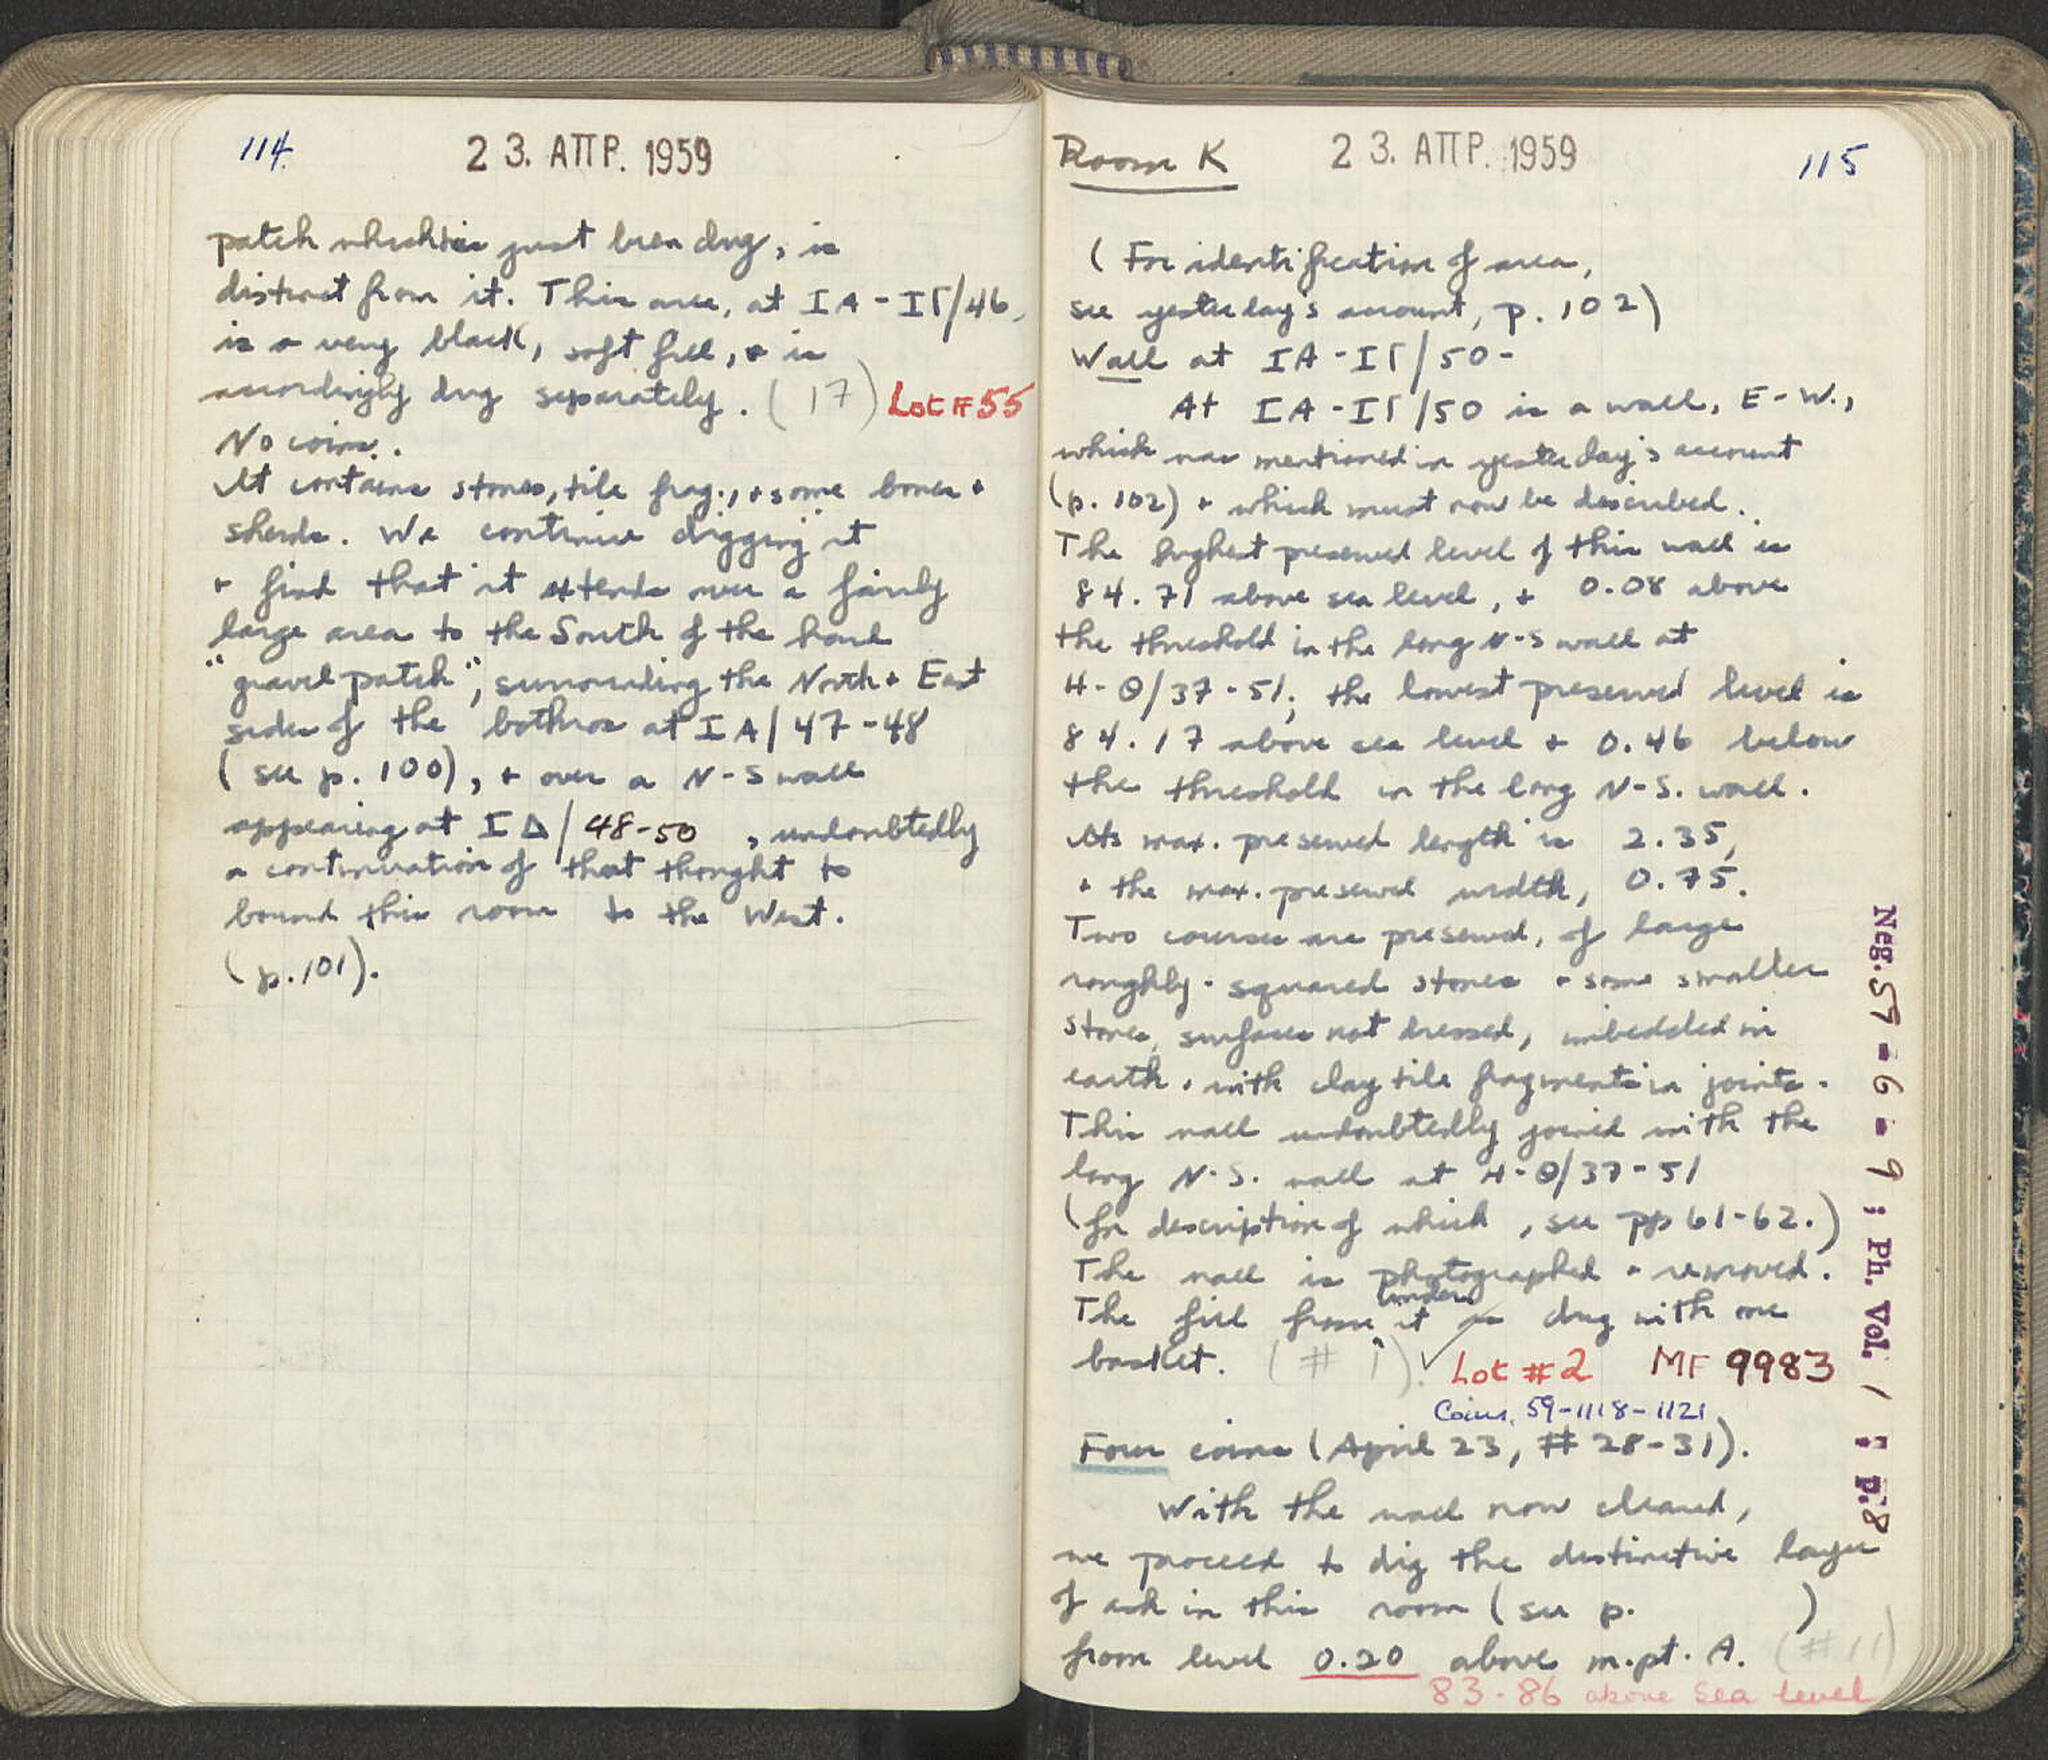 114.
23. ΑΠΡ. 1959
patch which has just been dug, is
distinct from it. This area, at ΙΑ-ΙΓ/46,
is a very black, soft fill, + is
accordingly dug separately. (17) Lot #55
No coins.
It contains stones, tile frag., + some bones +
sherds. We continue digging it
+ find that it extends over a fairly
large area to the South of the hard
"gravel patch", surrounding the North + East
sides of the bothros at ΙΑ/47-48
(see p. 100), + over a N-S wall
appearing at ΙΔ/48-50, undoubtedly
a continuation of that thought to
bound this room to the West.
(p.101).
Room K
23. ΑΠΡ. 1959
115
(For identification of area,
see yesterday's account, p. 102)
Wall at ΙΑ-ΙΓ/50-
At ΙΑ-ΙΓ/50 is a wall, E-W.,
which was mentioned in yesterday's account
(p. 102) + which must now be described.
The highest preserved level of this wall is
84.71 above sea level, + 0.08 above
the threshold in the long N-S wall at
H-Θ/37-51; the lowest preserved level is
84.17 above sea level + 0.46 below
the threshold in the long N-S. wall.
Its max. preserved length is 2.35,
+ the max. preserved width, 0.75.
Two courses are preserved, of large
roughly-squared stones + some smaller
stones, surfaces not dressed, imbedded in
earth, with clay tile fragments in joints.
This wall undoubtedly joined with the
long N-S. wall at H-Θ/37-51
(for description of which, see pp 61-62.)
The wall is photographed + removed.
under
The fill from it is dug with one
basket. (#1) ✓ Lot #2 MF 9983
Coins, 59-1118-1121
Four coins (April 23, #28-31).
With the wall now cleared,
we proceed to dig the distinctive layer
of ash in this room (see p. )
from level 0.20 above m.pt. A. (#11)
83-86 above sea level
Neg. 59-6-9; Ph. Vol. 1; p.8